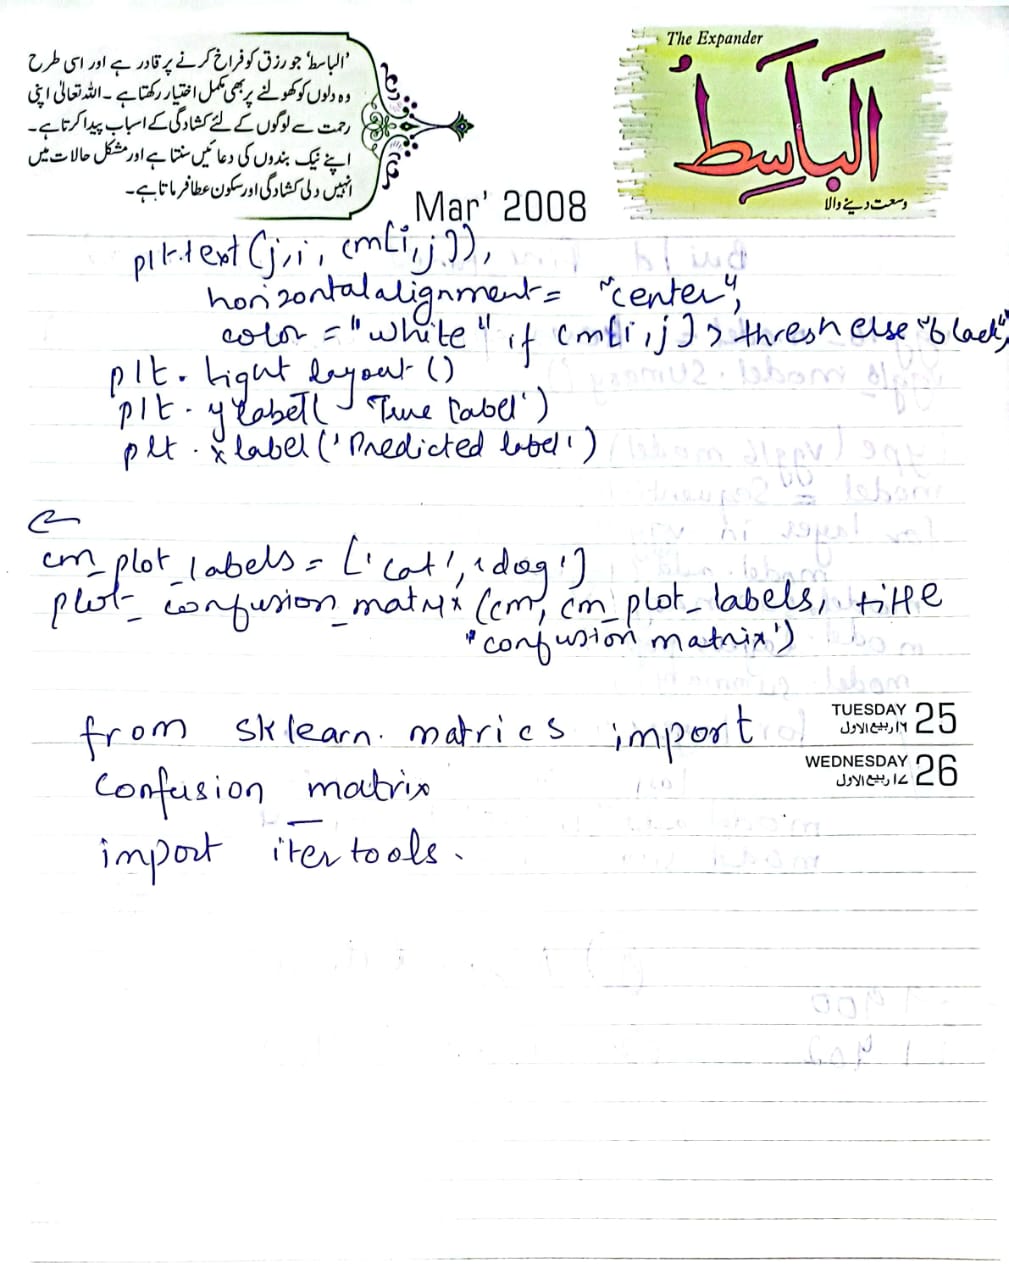 'الباسط' جو رزق کو فراخ کرنے پر قادر ہے اور اسی طرح
وہ دلوں کو کھولنے پر بھی مکمل اختیار رکھتا ہے ۔ اللہ تعالیٰ اپنی
رحمت سے لوگوں کے لئے کشادگی کے اسباب پیدا کرتا ہے ۔
اپنے نیک بندوں کی دعائیں سنتا ہے اور مشکل حالات میں
انہیں دلی کشادگی اور سکون عطا فرماتا ہے ۔
The Expander
الباسط
وسعت دینے والا
Mar' 2008
plt.text(j,i, cm[i,j]),
horizontalalignment= "center",
color = "white" if cm[i,j] > thresh else "black",
plt. tight layout ()
plt. ylabel( 'True label')
plt. xlabel('Predicted label')
cm_plot_labels = ['cat', 'dog']
plot_ confusion_matrix (cm, cm_plot_labels, title
"confusion matrix')
from sklearn. matrics import
Confusion _matrix
import itertools.
TUESDAY 25
١٦ ربیع الاول
WEDNESDAY 26
١٧ ربیع الاول